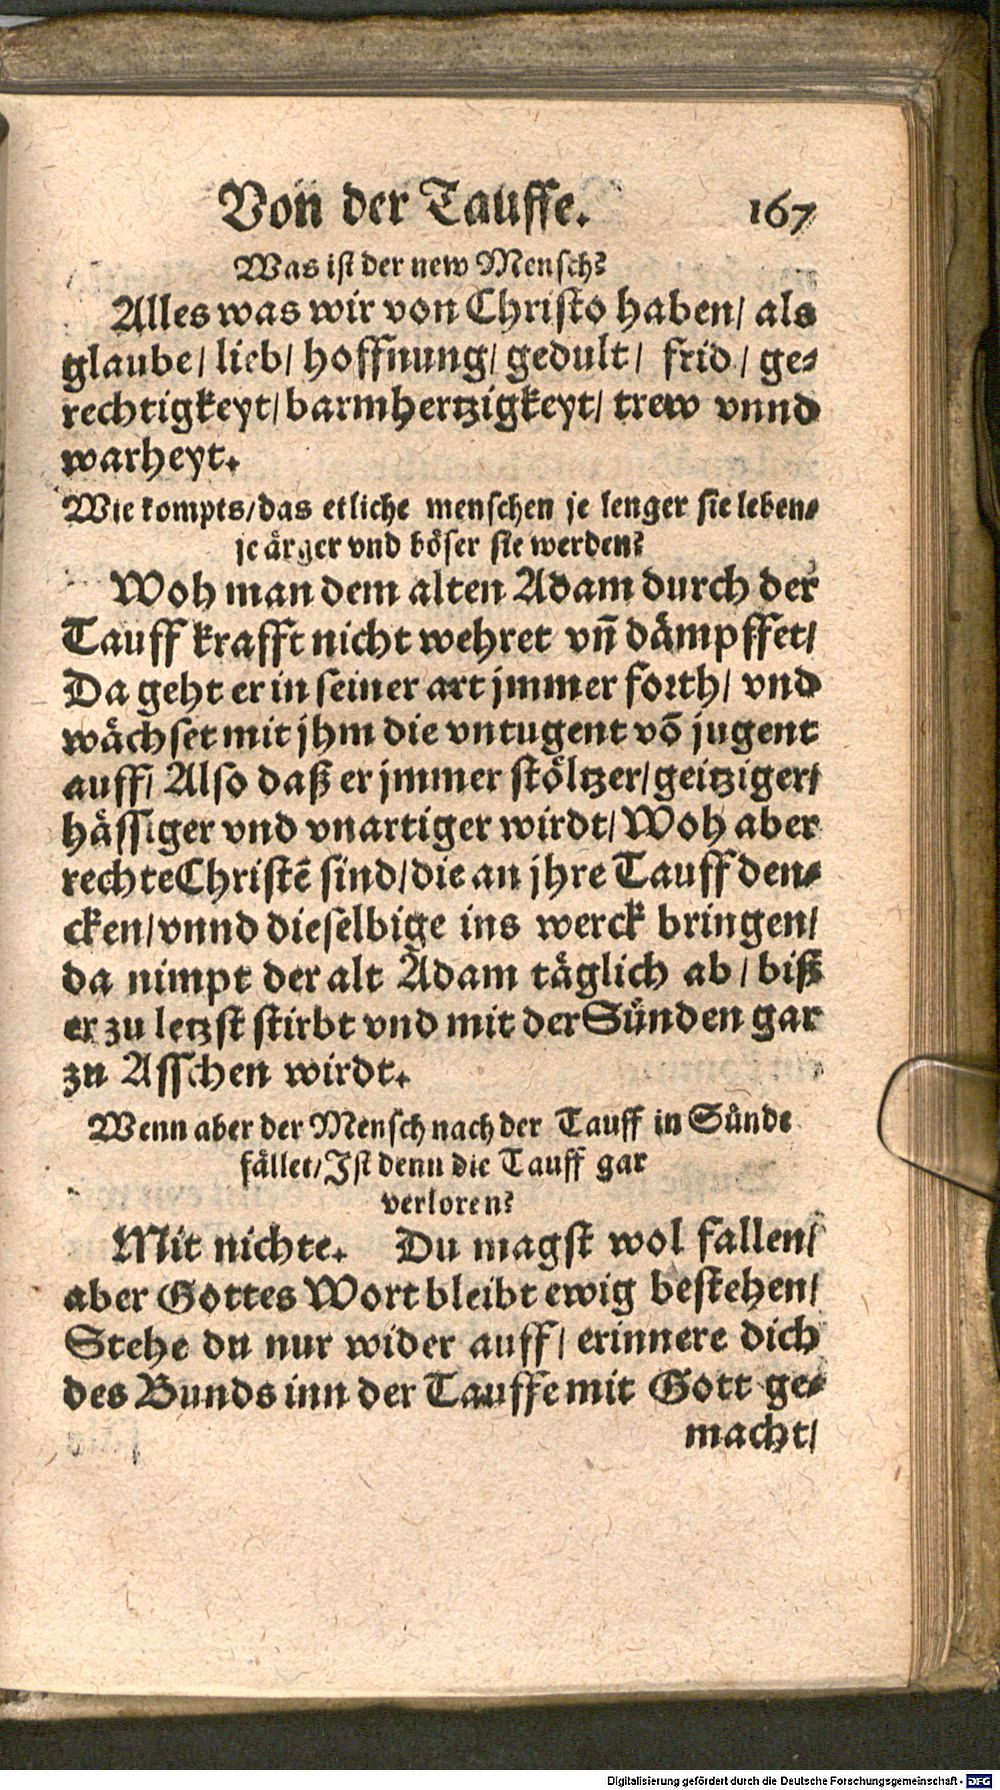 Von der Tauffe. 167
Was ist der new Mensch?
Alles was wir von Christo haben/ als
glaube/ lieb/ hoffnung/ gedult/ frid/ ge-
rechtigkeyt/ barmhertzigkeyt/ trew vnnd
warheyt.
Wie kompts/ das etliche menschen je lenger sie leben-
je ärger vnd böser sie werden?
Woh man dem alten Adam durch der
Tauff krafft nicht wehret vn̄ dämpffet/
Da geht er in seiner art jmmer forth/ vnd
wächset mit jhm die vntugent võ jugent
auff/ Also daß er jmmer stöltzer/ geitziger/
hässiger vnd vnartiger wirdt/ Woh aber
rechte Christẽ sind/ die an jhre Tauff den-
cken/ vnnd dieselbige ins werck bringen/
da nimpt der alt Adam täglich ab/ biß
er zu letzst stirbt vnd mit der Sünden gar
zu Asschen wirdt.
Wenn aber der Mensch nach der Tauff in Sünde
fället/ Ist denn die Tauff gar
verloren?
Mit nichte. Du magst wol fallen/
aber Gottes Wort bleibt ewig bestehen/
Stehe du nur wider auff/ erinnere dich
des Bunds inn der Tauffe mit Gott ge-
macht/
Digitalisierung gefördert durch die Deutsche Forschungsgemeinschaft - DFG